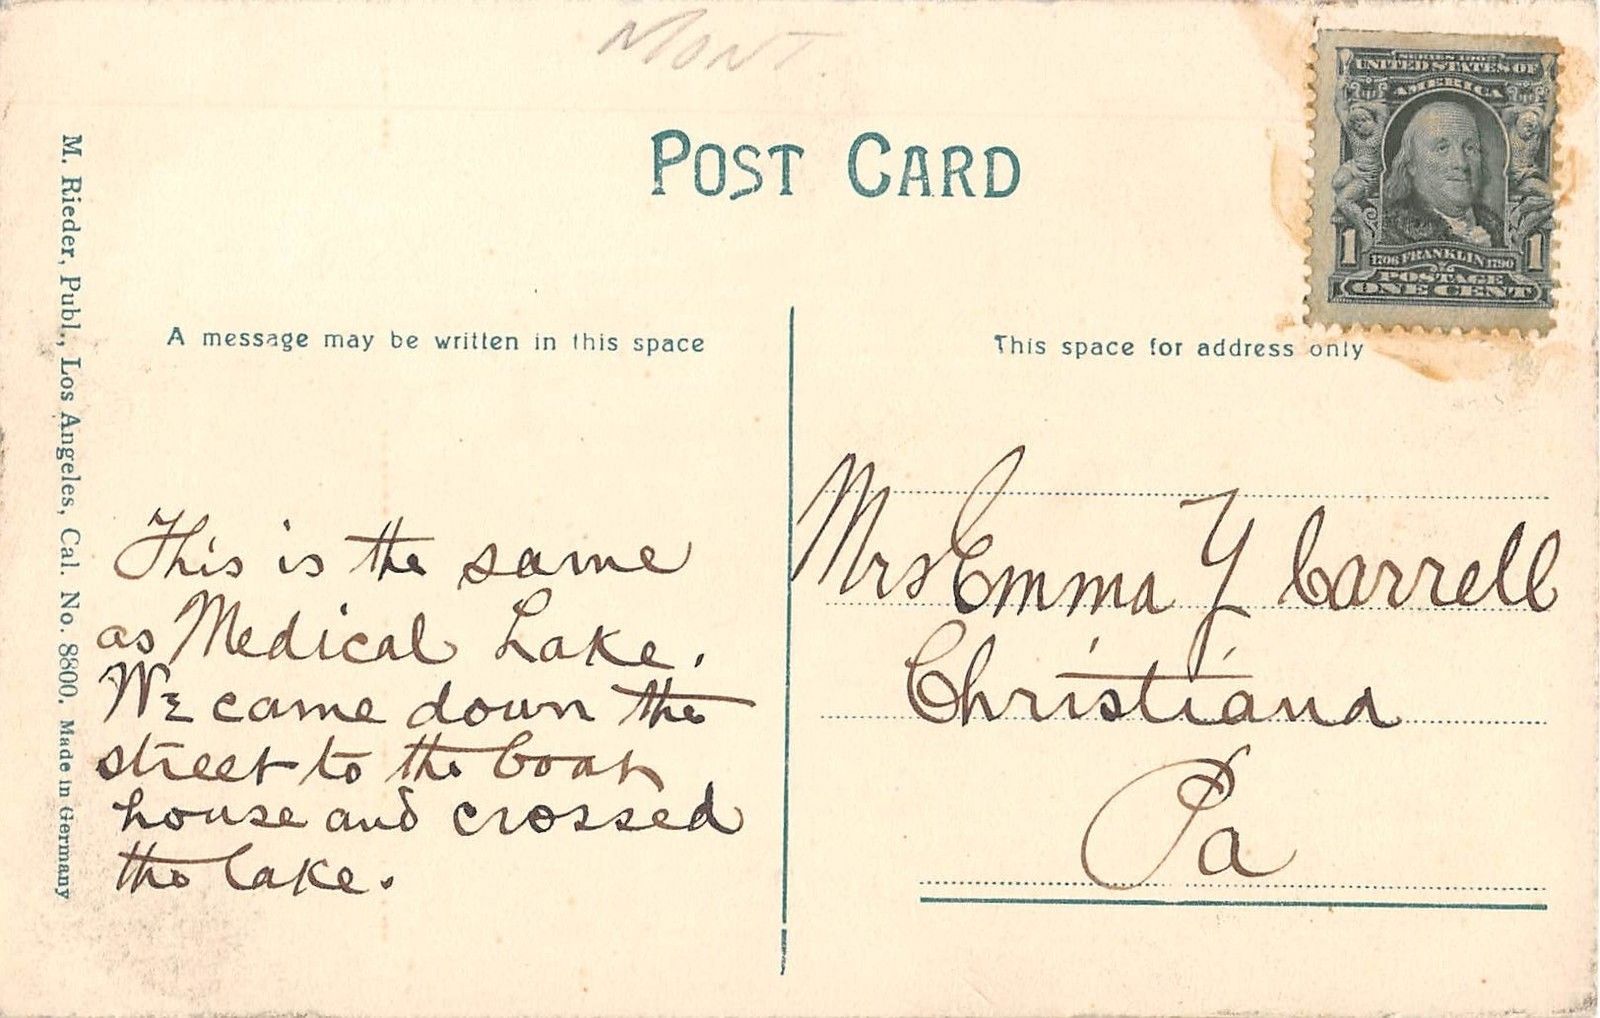 MONT.
POST CARD
SERIES 1902
UNITED STATES OF
AMERICA
1 1
1706 FRANKLIN 1790
POSTAGE
ONE CENT
M. Rieder, Publ., Los Angeles, Cal. No. 8800. Made in Germany
A message may be written in this space
This is the same
as Medical Lake.
We came down the
street to the boat
house and crossed
the lake.
This space for address only
Mrs Emma Y Carrell
Christiana
Pa